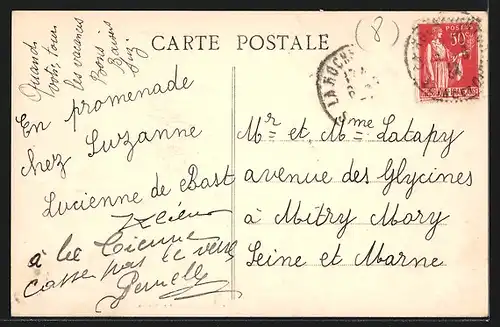 CARTE POSTALE
(8)
Quand
les vacances
Bons
Baisers
En promenade
chez Suzanne
Lucienne de Bast
à la Tienne
casse pas le verre
LA ROCHE
POSTES
30c
Mr et Mme Latapy
avenue des Glycines
à Mitry Mory
Seine et Marne